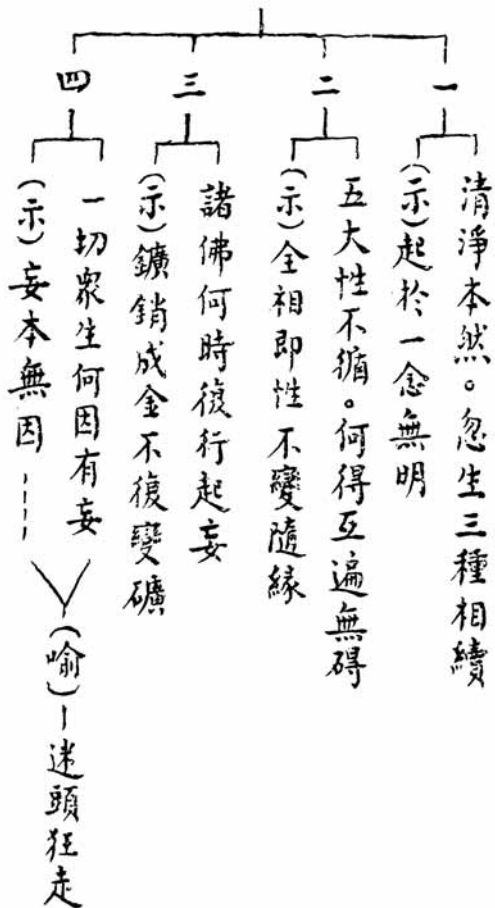 一
清淨本然。忽生三種相續
(示)起於一念無明
二
五大性不循。何得互遍無碍
(示)全相即性不變隨緣
三
諸佛何時復行起妄
(示)鑛銷成金不復變礦
四
一切眾生何因有妄
(示)妄本無因
(喻)迷頭狂走